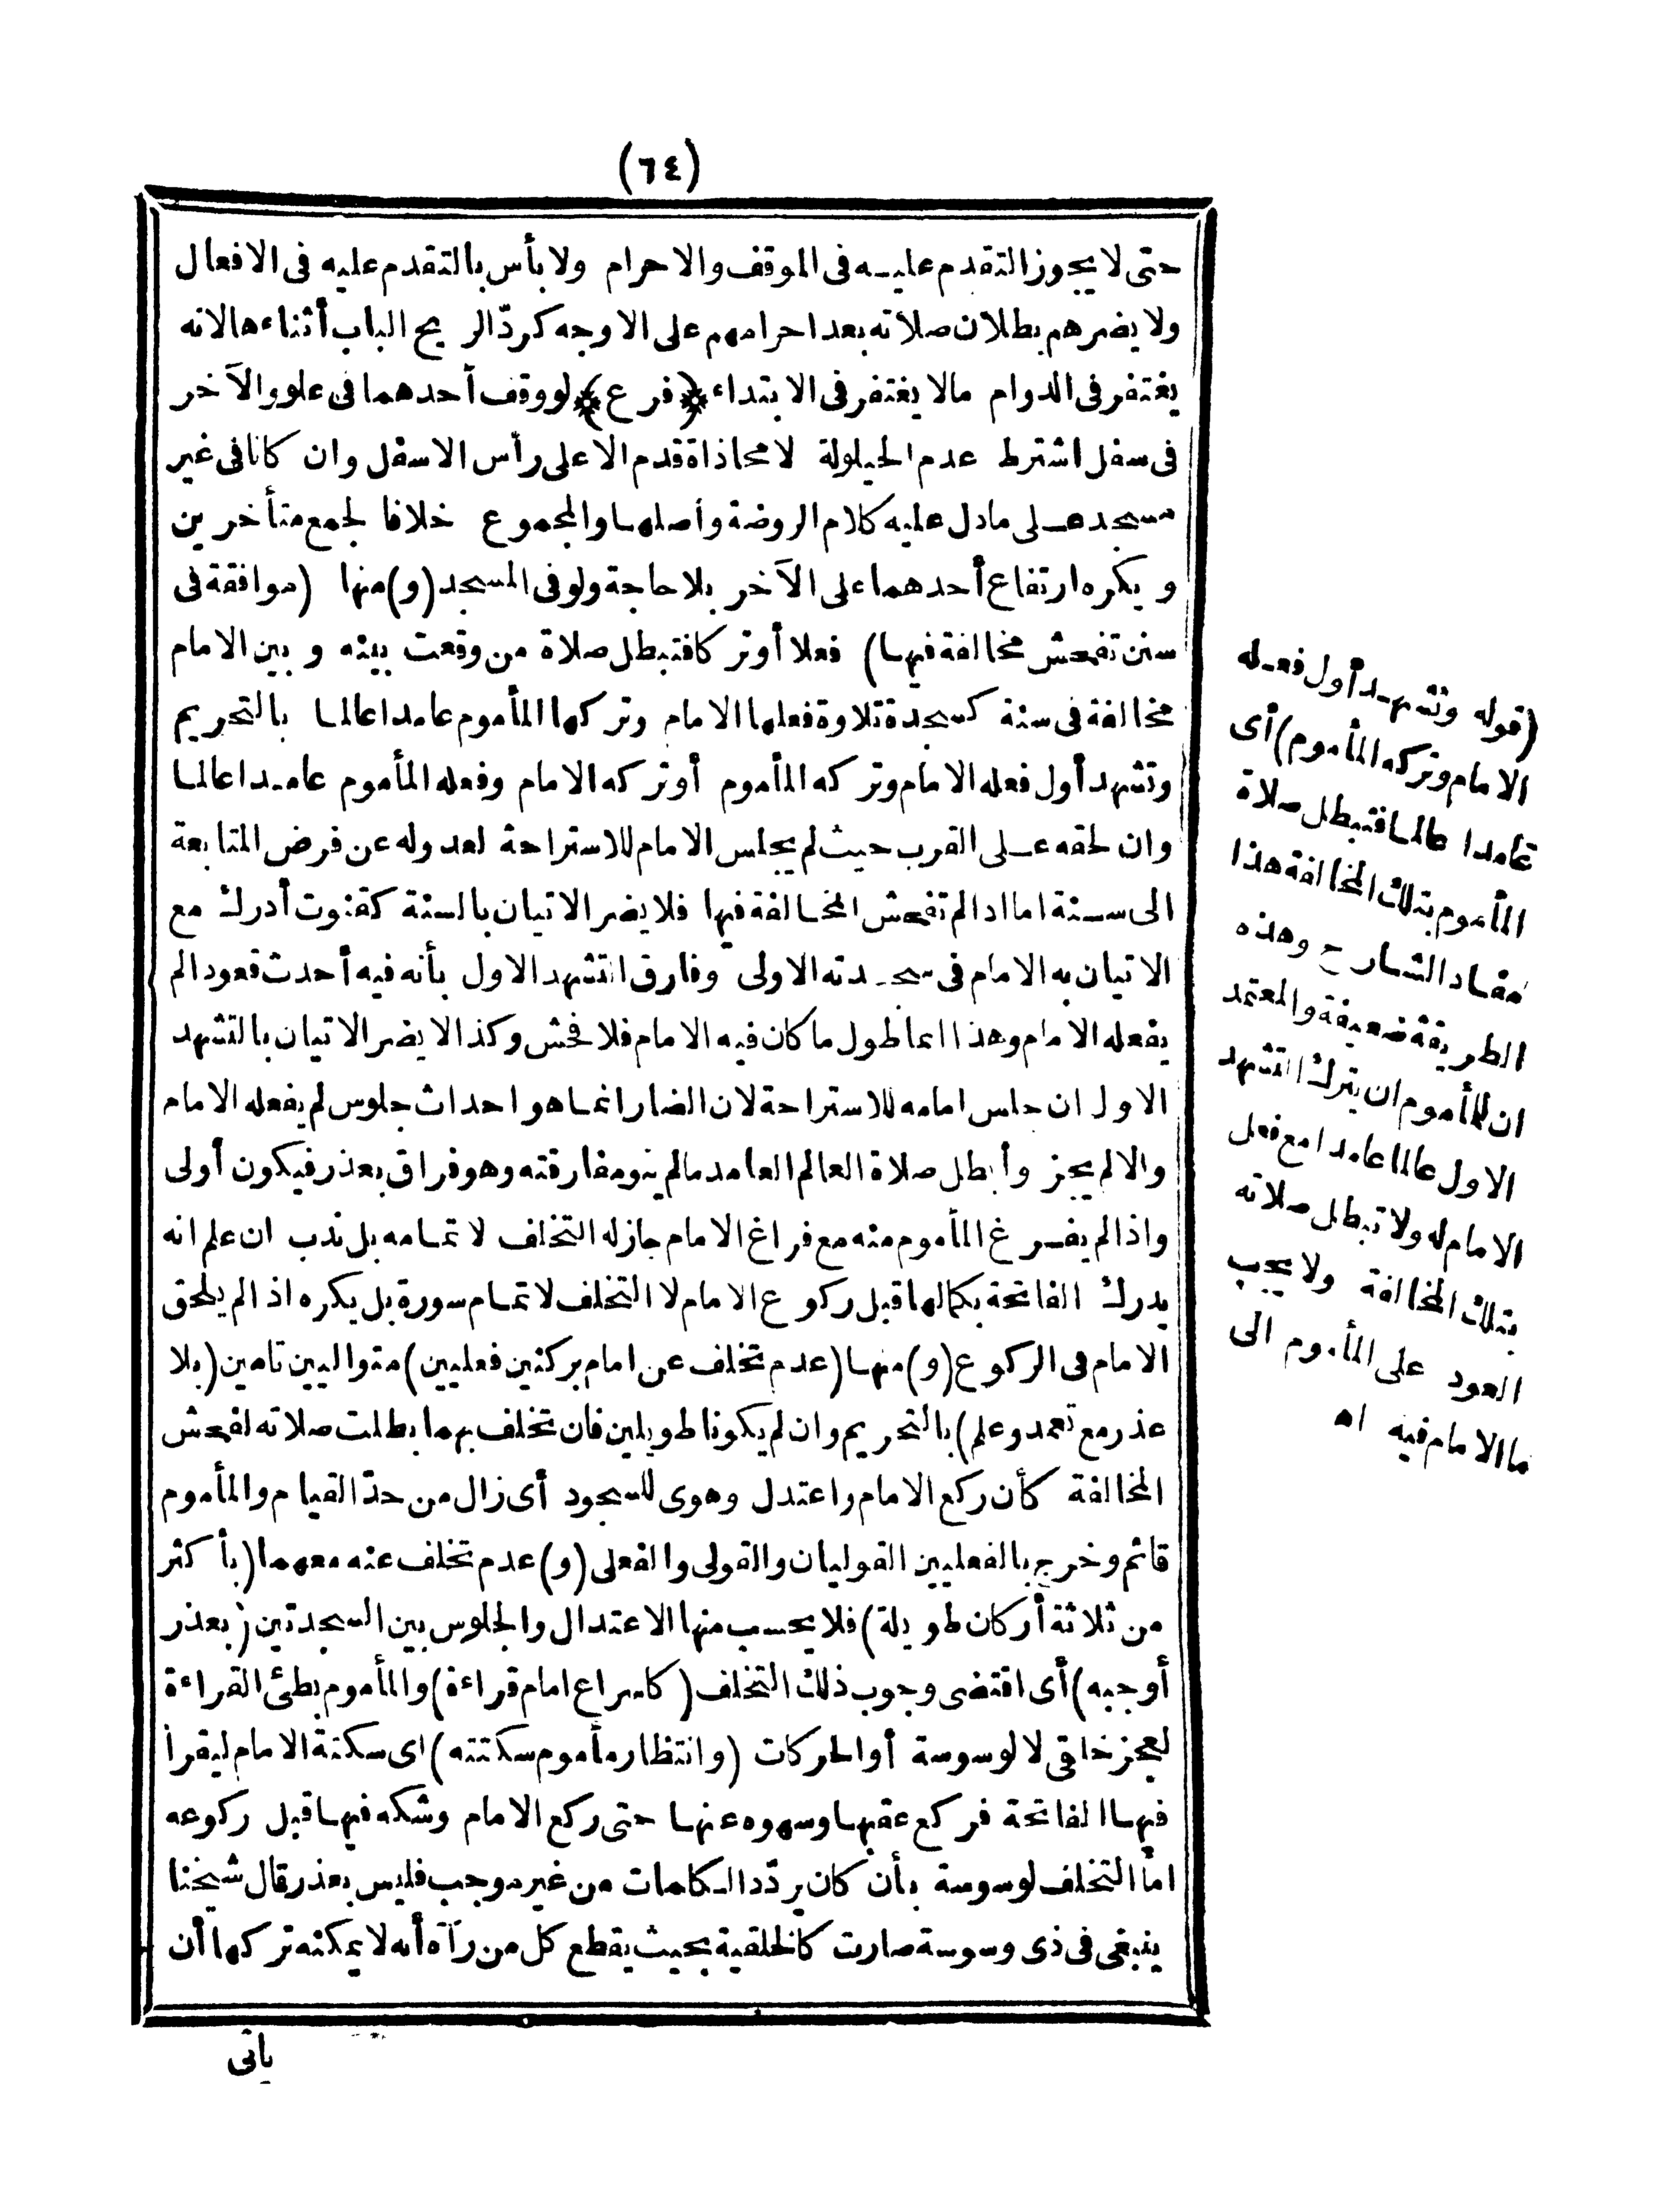 (٦٤)
حتى لا يجوز التقدم عليه فى الموقف والاحرام ولا بأس بالتقدم عليه فى الافعال
ولا يضرهم بطلان صلاته بعد احرامهم على الاوجه كردّ الريح الباب أثناءها لانه
يغتفر فى الدوام مالا يغتفر فى الابتداء ﴿فرع﴾ لو وقف أحدهما فى علو والآخر
فى سفل اشترط عدم الحيلولة لا محاذاة قدم الاعلى رأس الاسفل وان كانا فى غير
مسجد على مادل عليه كلام الروضة وأصلها والمجموع خلافا لجمع متأخرين
ويكره ارتفاع أحدهما على الآخر بلا حاجة ولو فى المسجد (و) منها (موافقة فى
سنن تفحش مخالفة فيها) فعلا أو تركا فتبطل صلاة من وقعت بينه وبين الامام
مخالفة فى سنة كسجدة تلاوة فعلها الامام وتركها المأموم عامدا عالما بالتحريم
وتشهد أول فعله الامام وتركه المأموم أو تركه الامام وفعله المأموم عامدا عالما
وان لحقه على القرب حيث لم يجلس الامام للاستراحة لعدوله عن فرض المتابعة
الى سنة اما اذا لم تفحش المخالفة فيها فلا يضر الاتيان بالسنة كقنوت أدرك مع
الاتيان به الامام فى سجدته الاولى وفارق التشهد الاول بأنه فيه أحدث قعودا لم
يفعله الامام وهذا انما طول ما كان فيه الامام فلا فحش وكذا لا يضر الاتيان بالتشهد
الاول ان جلس امامه للاستراحة لان الضار انما هو احداث جلوس لم يفعله الامام
والا لم يجز وأبطل صلاة العالم العامد مالم ينو مفارقته وهو فراق بعذر فيكون أولى
واذا لم يفرغ المأموم منه مع فراغ الامام جاز له التخلف لاتمامه بل ندب ان علم انه
يدرك الفاتحة بكمالها قبل ركوع الامام لا التخلف لاتمام سورة بل يكره اذا لم يلحق
الامام فى الركوع (و) منها (عدم تخلف عن امام بركنين فعليين) متواليين تامين (بلا
عذر مع تعمد وعلم) بالتحريم وان لم يكونا طويلين فان تخلف بهما بطلت صلاته لفحش
المخالفة كأن ركع الامام واعتدل وهوى للسجود أى زال من حدّ القيام والمأموم
قائم وخرج بالفعليين القوليان والقولى والفعلى (و) عدم تخلف عنه معهما (بأكثر
من ثلاثة أركان طويلة) فلا يحسب منها الاعتدال والجلوس بين السجدتين (بعذر
أوجبه) أى اقتضى وجوب ذلك التخلف (كاسراع امام قراءة) والمأموم بطئ القراءة
لعجز خلقى لا لوسوسة أو الحركات (وانتظار مأموم سكتته) اى سكتة الامام ليقرأ
فيها الفاتحة فركع عقبها وسهوه عنها حتى ركع الامام وشكه فيها قبل ركوعه
امّا التخلف لوسوسة بأن كان يردّد الكلمات من غير موجب فليس بعذر قال شيخنا
ينبغى فى ذى وسوسة صارت كالخلقية بحيث يقطع كل من رآه أنه لا يمكنه تركها أن
يأتى
(قوله وتشهد أول فعله
الامام وتركه المأموم) أى
عامدا عالما فتبطل صلاة
المأموم بتلك المخالفة هذا
مفاد الشارح وهذه
الطريقة ضعيفة والمعتمد
ان للمأموم ان يترك التشهد
الاول عالما عامدا مع فعل
الامام له ولا تبطل صلاته
بتلك المخالفة ولا يجب
العود على المأموم الى
ما الامام فيه اه